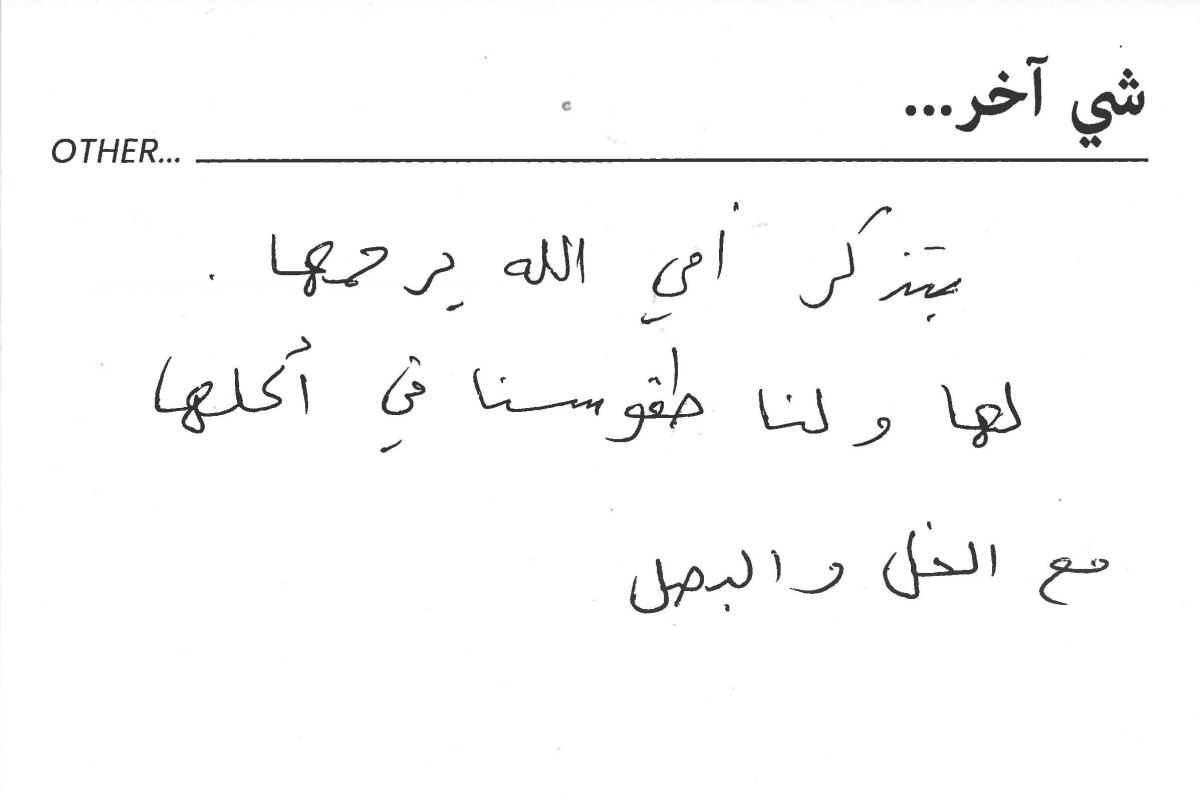 شي آخر...
OTHER...
بتذكر أمي الله يرحمها .
لها ولنا طقوسنا في أكلها
مع الخل والبصل